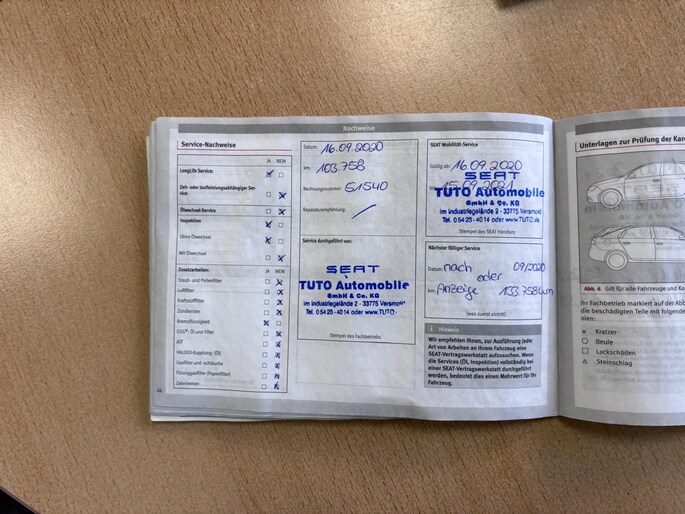 Nachweise
Service-Nachweise
JA NEIN
LongLife Service:
Zeit- oder laufleistungsabhängiger Ser-
vice
Ölwechsel-Service
Inspektion
Ohne Ölwechsel
Mit Ölwechsel
Zusatzarbeiten:
JA NEIN
Staub- und Pollenfilter
Luftfilter
Kraftstofffilter
Zündkerzen
Bremsflüssigkeit
DSG®: Öl und Filter
ATF
HALDEX-Kupplung: (Öl)
Gasfilter und
Flüssiggasfilter (Papierfilter)
Zahnriemen
Datum: 16.09.2020
km: 103.758
Rechnungsnummer: 51540
Reparaturempfehlung:
Service durchgeführt von:
SEAT
TUTO Automobile
GmbH & Co. KG
Im Industriegelände 2 - 33775 Versmold
Tel. 0 54 23 - 40 14 oder www.TUTO.
Stempel des Fachbetriebs
SEAT Mobilitäts-Service
Gültig ab: 16.09.2020
15.09.2021
SEAT
TUTO Automobile
GmbH & Co. KG
Im Industriegelände 2 - 33775 Versmold
Tel. 0 54 23 - 40 14 oder www.TUTO.de
Stempel des SEAT Händlers
Nächster fälliger Service
Datum: nach oder 09/2020
km: Anzeige 133.758km
(was zuerst eintritt)
Hinweis
Wir empfehlen Ihnen, zur Ausführung jeder
Art von Arbeiten an Ihrem Fahrzeug eine
SEAT-Vertragswerkstatt aufzusuchen. Wenn
die Services (Öl, Inspektion) vollständig bei
einer SEAT-Vertragswerkstatt durchgeführt
werden, bedeutet dies einen Mehrwert für Ihr
Fahrzeug.
Unterlagen zur Prüfung der Karo
Abb. 6 Gilt für alle Fahrzeuge und Ka
Ihr Fachbetrieb markiert auf der Abb
die beschädigten Teile mit folgende
len:
Kratzer
Beule
Lackschäden
Steinschlag